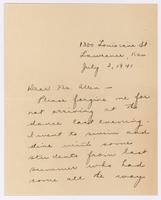 1300 Louisiana St
Lawrence, Kan
July 2, 1941
Dear Mr. Allen —
Please forgive me for
not arriving at the
dance last evening.
I went to swim and
dine with some
students from last
summer who had
come all the way